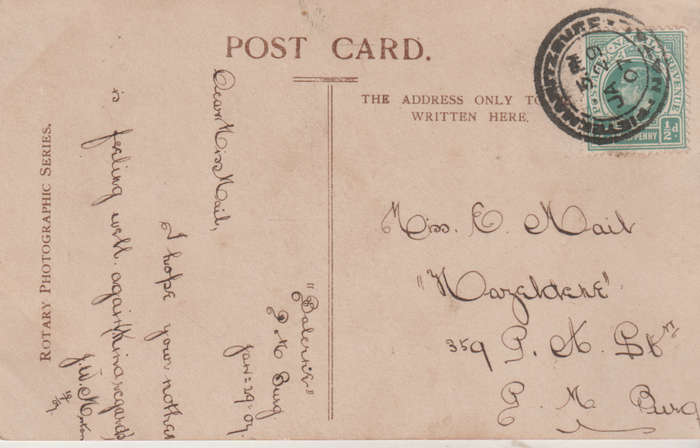 POST CARD.
THE ADDRESS ONLY TO
WRITTEN HERE.
ROTARY PHOTOGRAPHIC SERIES.
"Balerno"
P M Burg
Jan = 29.07.
Dear Miss Mail,
I hope your mother
is feeling well again Kind regards
J.W.
Miss. E. Mail
"Hazeldene"
359 P. M. St
P. M. Burg
REVENUE
½d
PENNY
JA
07